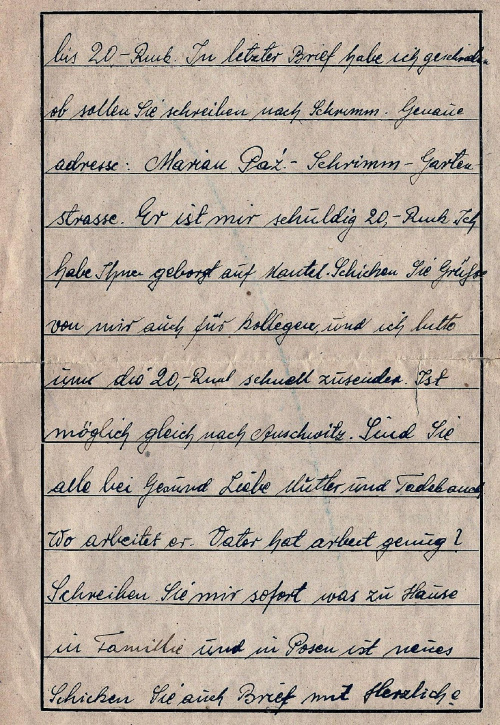 bis 20-Rmk. In letzter Brief habe ich geschrieben
ob sollen Sie schreiben nach Schrimm. Genaue
adresse: Marian Paź - Schrimm - Garten-
strasse. Er ist mir schuldig 20,- Rmk. Ich
habe Ihnen geborgt auf Mantel. Schicken Sie Grüsse
von mir auch für kollegen, und ich bitte
um die 20,-Rmk schnell zusenden. Ist
möglich gleich nach Auschwitz. Sind Sie
alle bei Gesund Liebe Mutter und Tadek auch
Wo arbeitet er. Vater hat arbeit genug?
Schreiben Sie mir sofort was zu Hause
in Famillie und in Posen ist neues
Schicken Sie auch Brief mit Herzliche